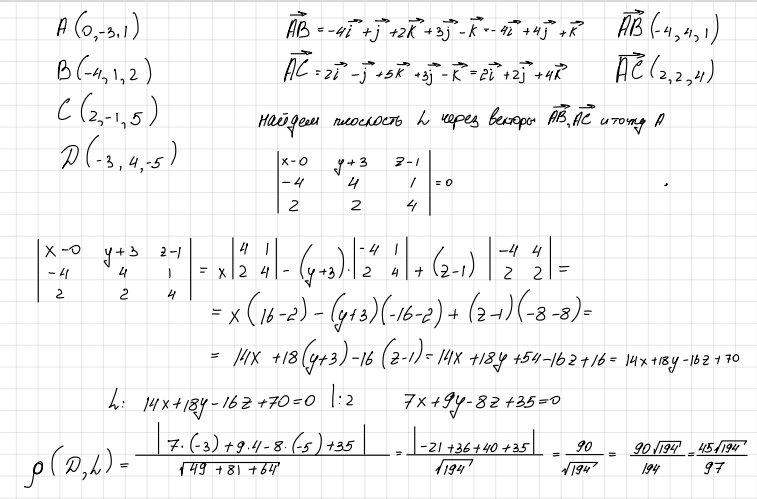 A(0,-3,1)
B(-4,1,2)
C(2,-1,5)
D(-3,4,-5)
AB⃗ = -4i⃗ + j⃗ + 2k⃗ + 3j⃗ - k⃗ = -4i⃗ + 4j⃗ + k⃗    AB⃗(-4,4,1)
AC⃗ = 2i⃗ - j⃗ + 5k⃗ + 3j⃗ - k⃗ = 2i⃗ + 2j⃗ + 4k⃗    AC⃗(2,2,4)
найдем плоскость L через векторы AB⃗, AC⃗ и точку A
|x-0 y+3 z-1|
|-4 4 1| = 0
|2 2 4|
|x-0 y+3 z-1|
|-4 4 1| = x |4 1; 2 4| - (y+3)·|-4 1; 2 4| + (z-1) |-4 4; 2 2| =
|2 2 4|
= x(16-2) - (y+3)(-16-2) + (z-1)(-8-8) =
= 14x + 18(y+3) - 16(z-1) = 14x + 18y + 54 - 16z + 16 = 14x + 18y - 16z + 70
L: 14x + 18y - 16z + 70 = 0 |:2    7x + 9y - 8z + 35 = 0
ρ(D,L) = |7·(-3) + 9·4 - 8·(-5) + 35| / √(49 + 81 + 64) = |-21 + 36 + 40 + 35| / √194 = 90/√194 = 90√194/194 = 45√194/97